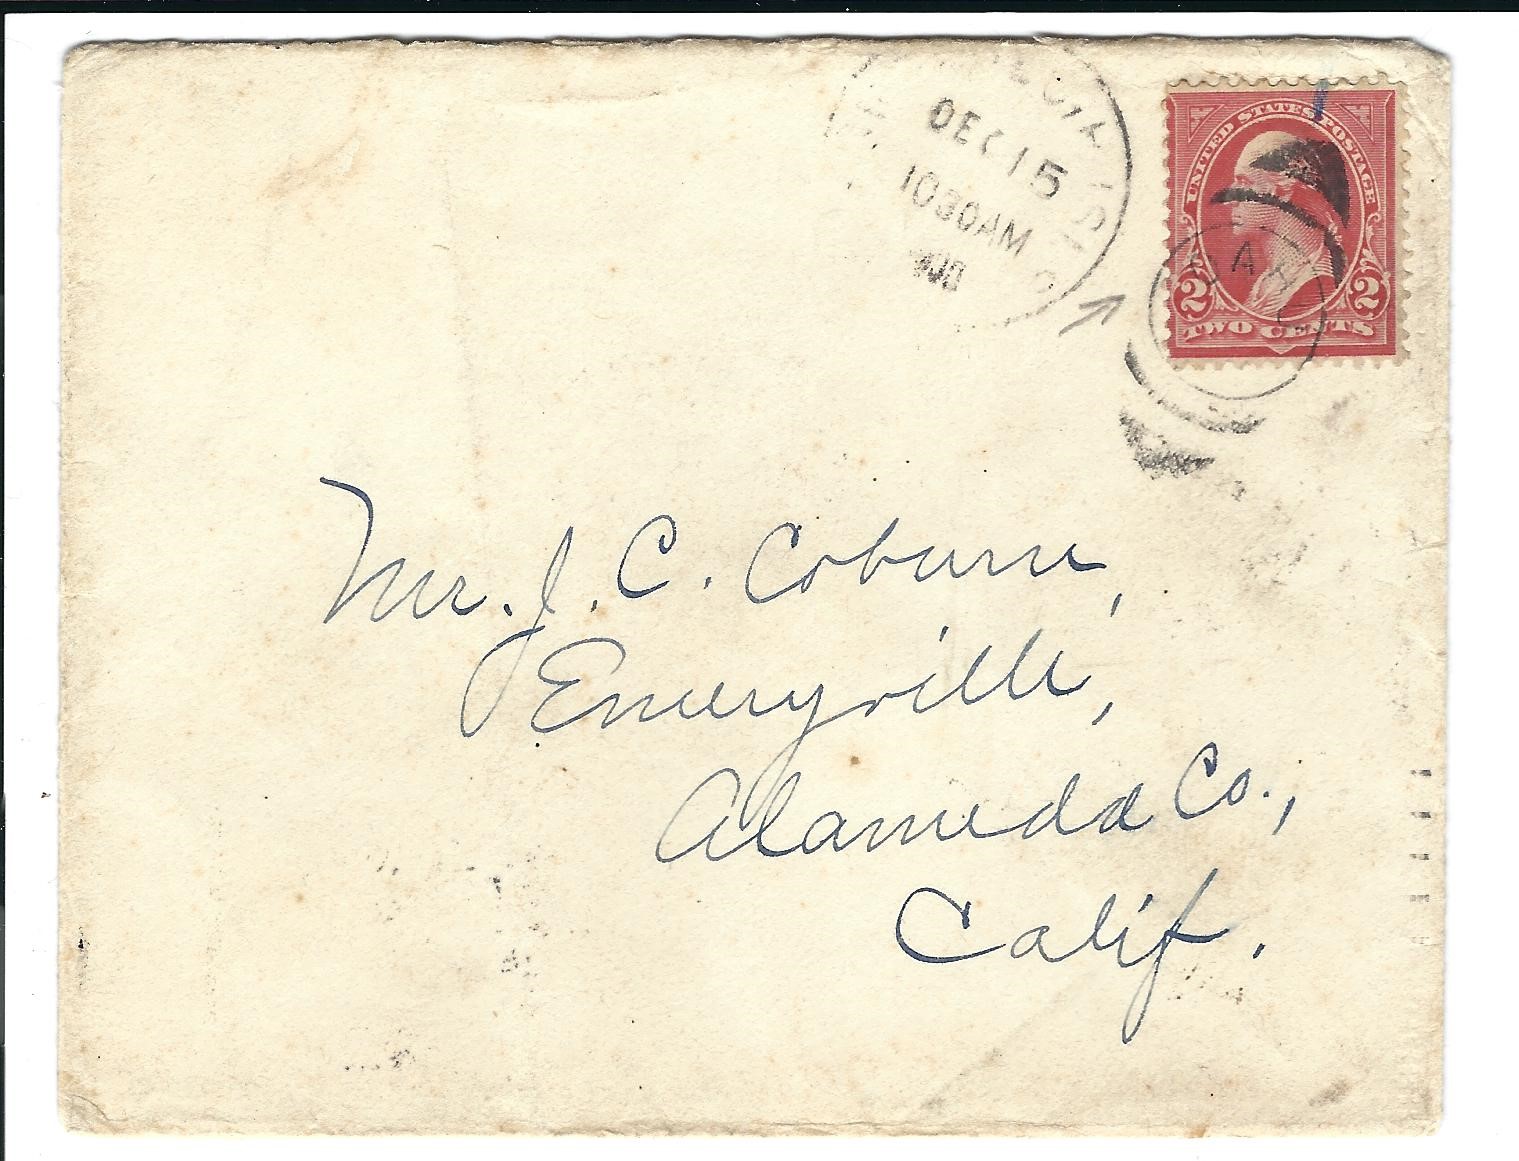 DEC 15
1030AM
UNITED STATES POSTAGE
2 2
TWO CENTS
Mr. J. C. Coburn,
Emeryville,
Alameda Co.,
Calif.